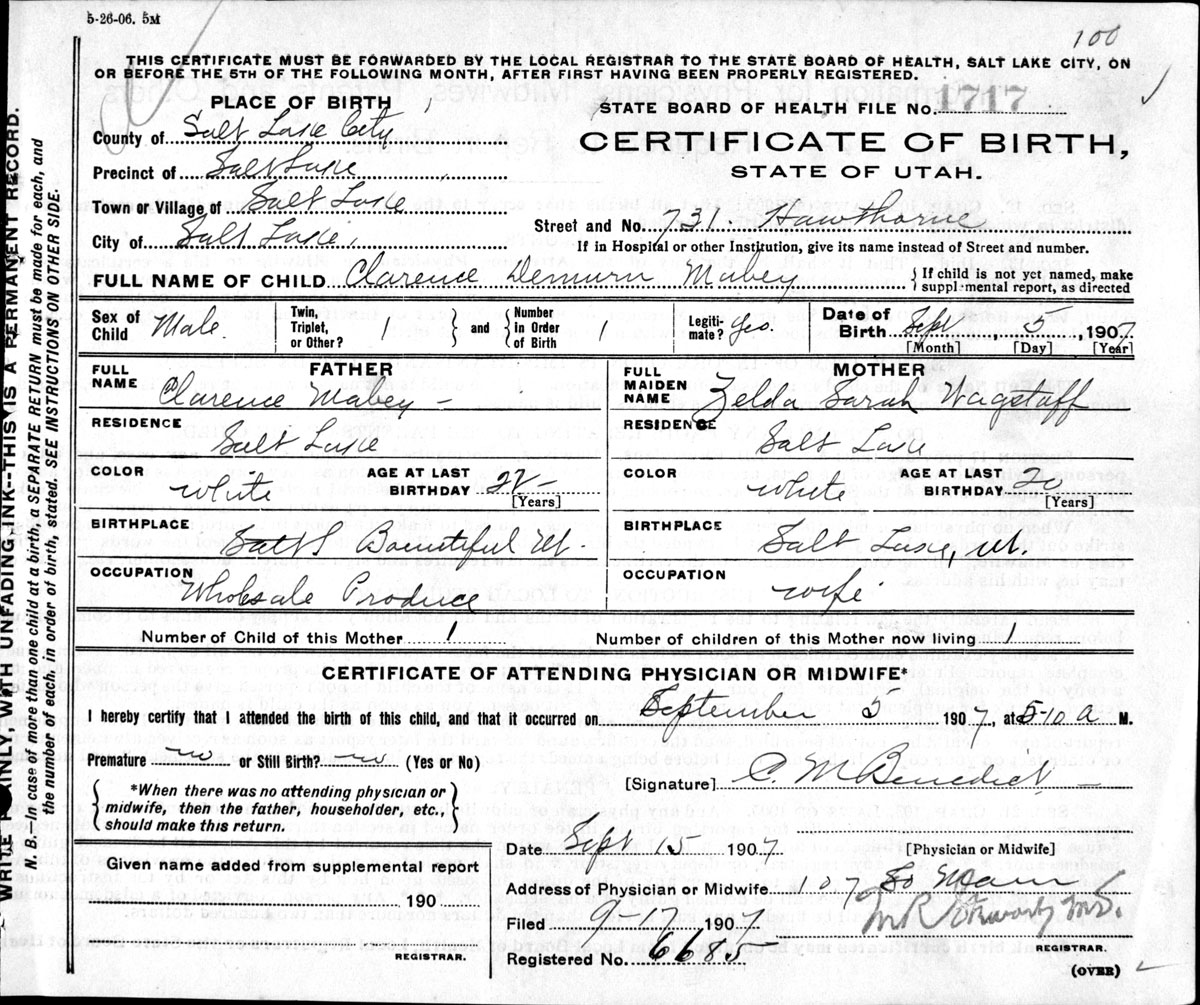 5-26-06. 5M
100
THIS CERTIFICATE MUST BE FORWARDED BY THE LOCAL REGISTRAR TO THE STATE BOARD OF HEALTH, SALT LAKE CITY, ON
OR BEFORE THE 5TH OF THE FOLLOWING MONTH, AFTER FIRST HAVING BEEN PROPERLY REGISTERED.
PLACE OF BIRTH
STATE BOARD OF HEALTH FILE No. 1717
County of Salt Lake City
CERTIFICATE OF BIRTH,
Precinct of Salt Lake
STATE OF UTAH.
Town or Village of Salt Lake
Street and No. 731. Hawthorne
City of Salt Lake,
If in Hospital or other Institution, give its name instead of Street and number.
FULL NAME OF CHILD Clarence Mabey
If child is not yet named, make
supplemental report, as directed
Sex of Child Male
Twin, Triplet, or Other? 1 and Number in Order of Birth 1
Legitimate? Yes.
Date of Birth Sept 5, 1907
[Month] [Day] [Year]
FATHER
MOTHER
FULL NAME Clarence Mabey -
FULL MAIDEN NAME Zelda Sarah Wagstaff
RESIDENCE Salt Lake
RESIDENCE Salt Lake
COLOR White AGE AT LAST BIRTHDAY 22 - [Years]
COLOR White AGE AT LAST BIRTHDAY 20 [Years]
BIRTHPLACE Bountiful Ut.
BIRTHPLACE Salt Lake, Ut.
OCCUPATION Wholesale Produce
OCCUPATION wife
Number of Child of this Mother 1
Number of children of this Mother now living 1
CERTIFICATE OF ATTENDING PHYSICIAN OR MIDWIFE*
I hereby certify that I attended the birth of this child, and that it occurred on September 5 1907, at 5-10 a M.
Premature no or Still Birth? no (Yes or No)
[Signature] C M Benedict
*When there was no attending physician or
midwife, then the father, householder, etc.,
should make this return.
Date Sept 13 1907 [Physician or Midwife]
Given name added from supplemental report
190
REGISTRAR.
Address of Physician or Midwife. 107 So Main
Filed 1907
Registered No. 6685
REGISTRAR.
(OVER)
WRITE PLAINLY, WITH UNFADING INK--THIS IS A PERMANENT RECORD.
N. B.—In case of more than one child at a birth, a SEPARATE RETURN must be made for each, and
the number of each, in order of birth, stated. SEE INSTRUCTIONS ON OTHER SIDE.